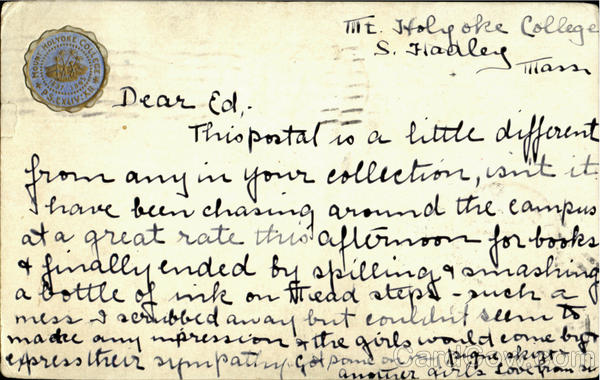 Mt. Holyoke College
S. Hadley
Mass
MOUNT HOLYOKE COLLEGE
1837
PS. CXLIV: XII
Dear Ed,-
This postal is a little different
from any in your collection, isn't it
I have been chasing around the campus
at a great rate this afternoon for books
& finally ended by spilling & smashing
a bottle of ink on Mead steps - such a
mess - I scrubbed away but couldn't seem to
make any impression & the girls would come by &
express their sympathy. Got some on
another girl's skirt
Love from
CardCow.com